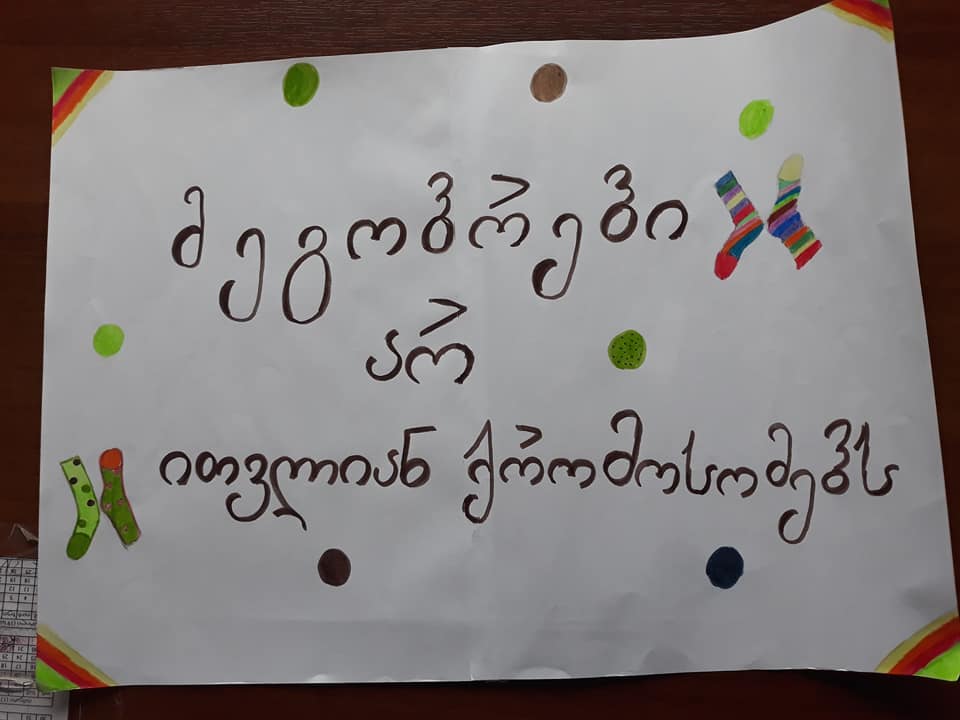 მეგობრები
არ
ითვლიან ქრომოსომებს